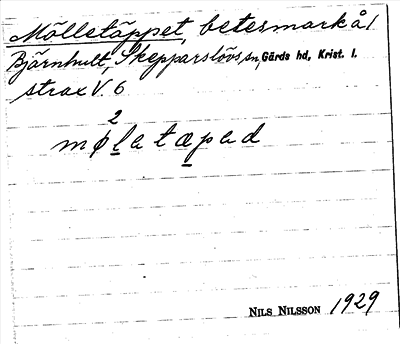 Mölletäppet, betesmark å 1
Björnhult, Skepparslövs sn, Gärds hd, Krist. l.
strax V. 6
2
mølatæpad
NILS NILSSON 1929